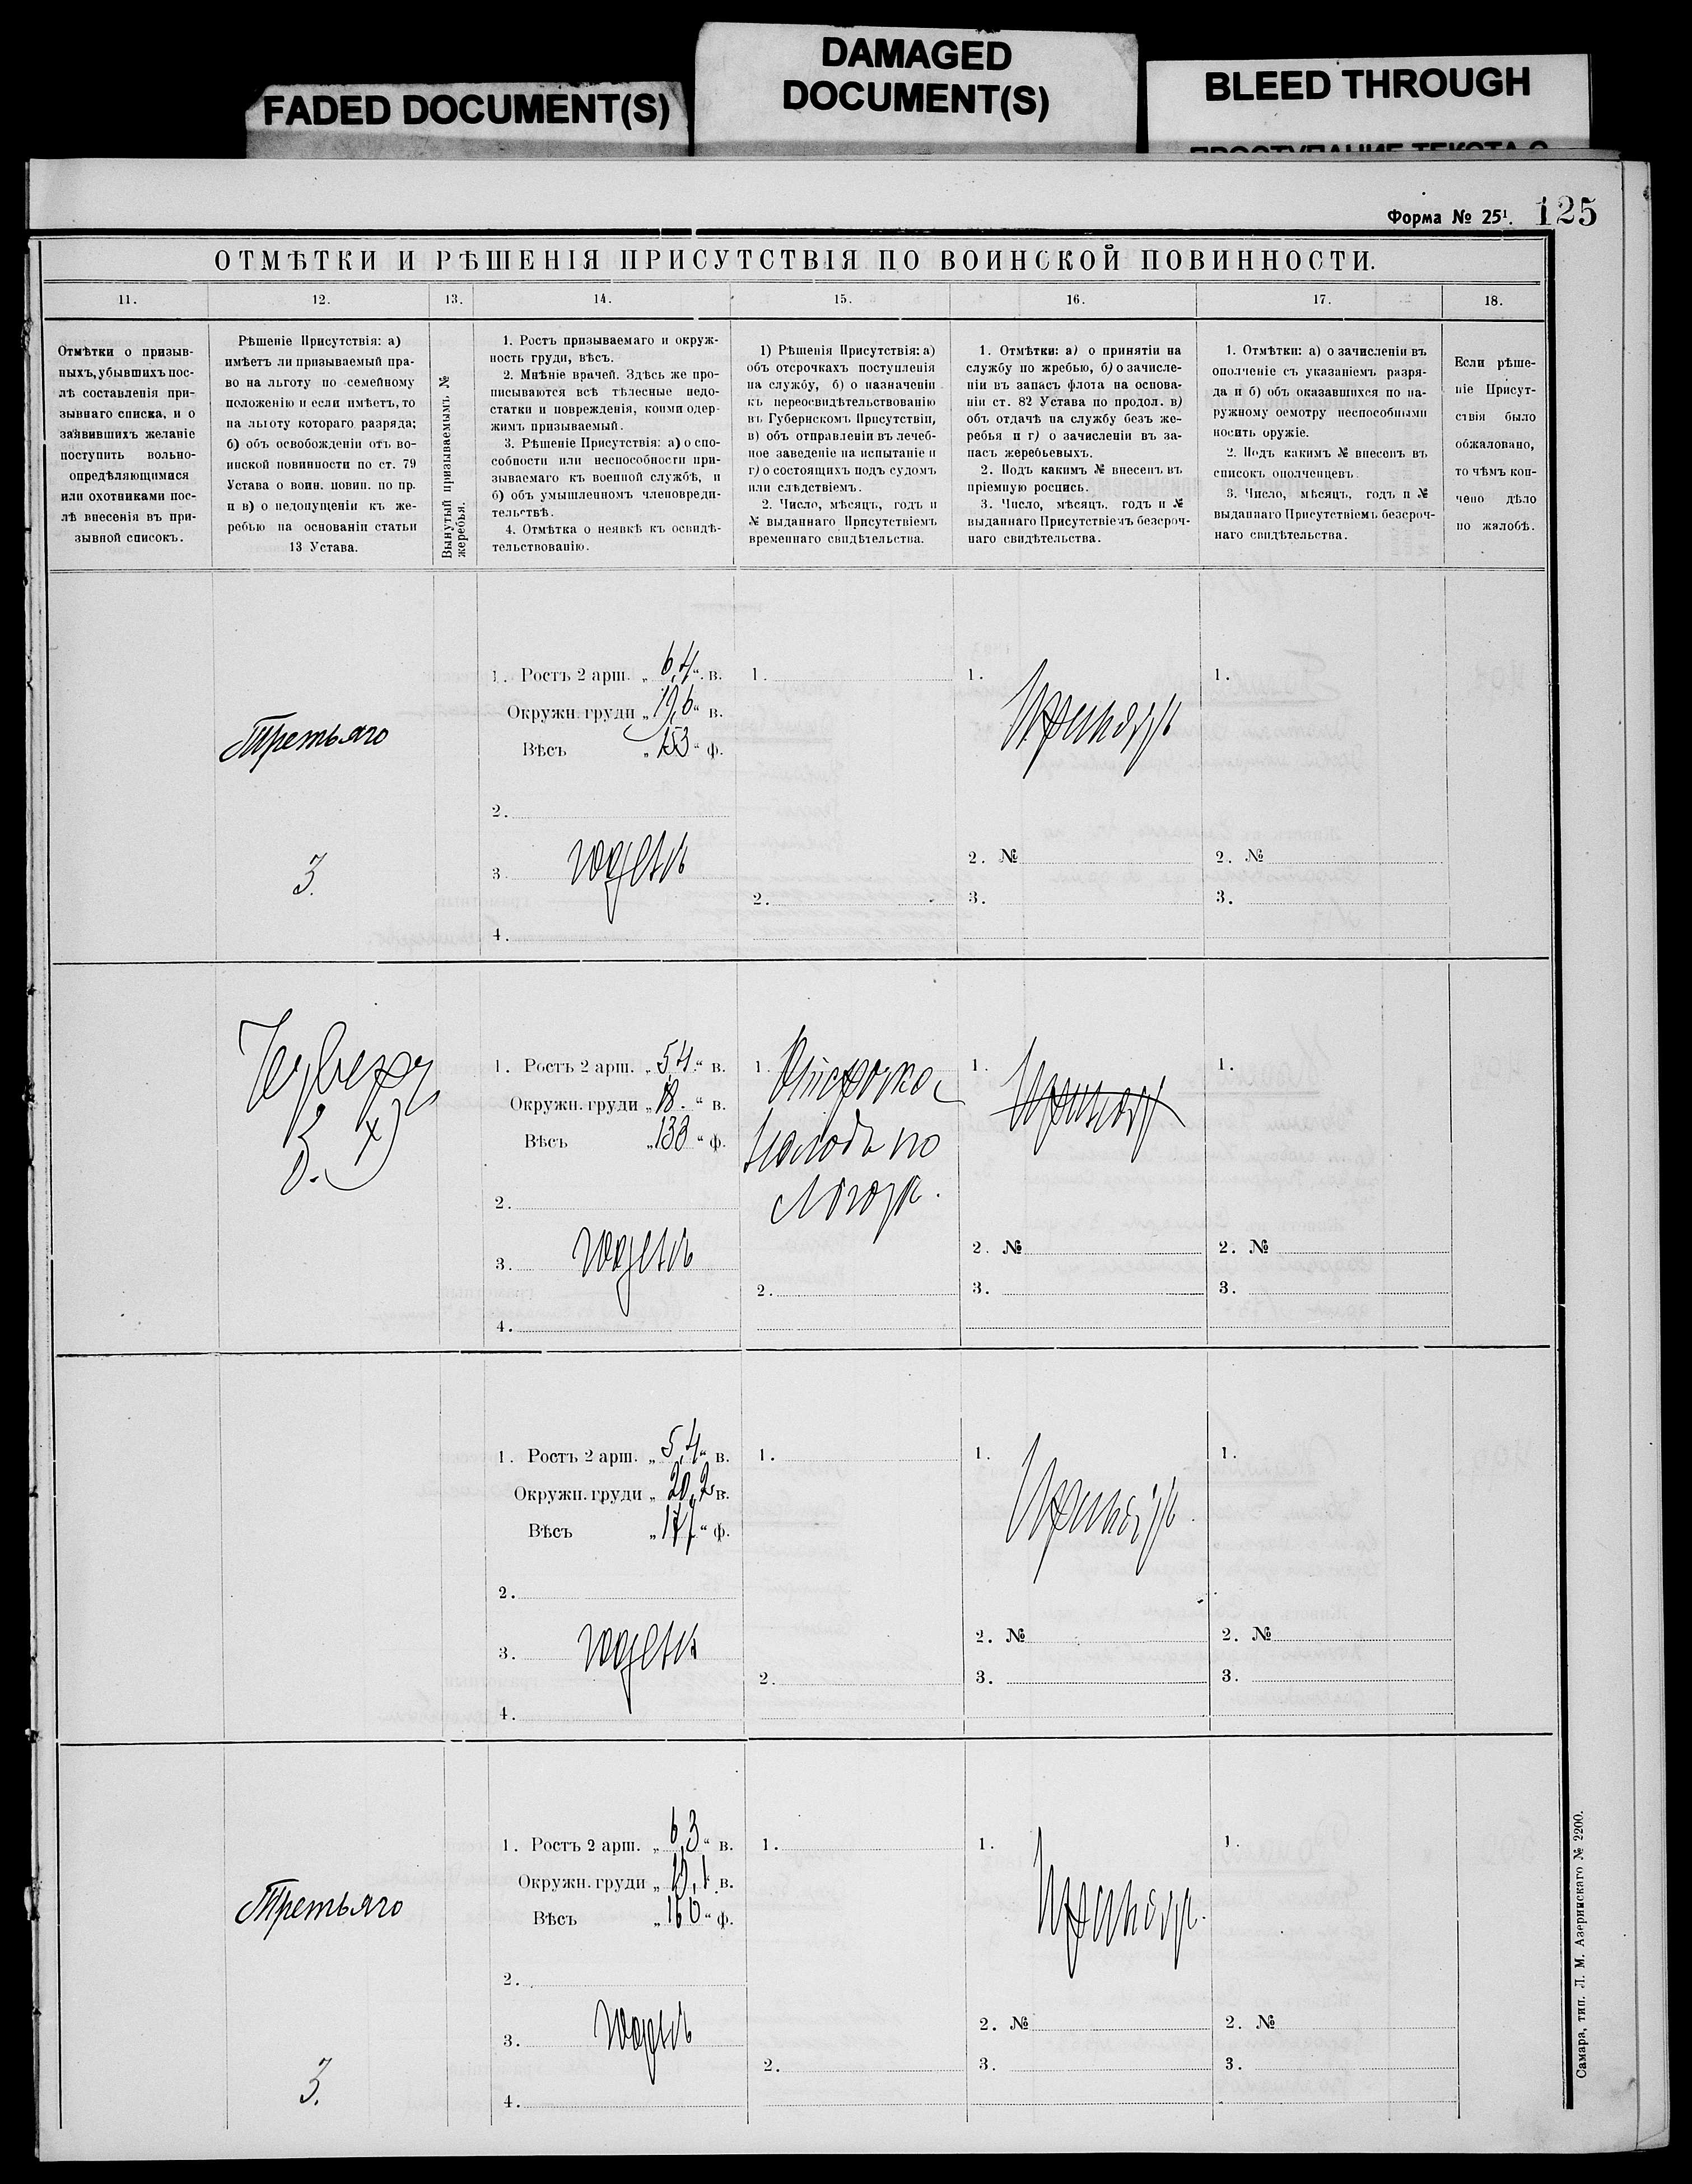 FADED DOCUMENT(S)
DAMAGED
DOCUMENT(S)
BLEED THROUGH
Форма № 25¹. 125
ОТМѢТКИ И РѢШЕНІЯ ПРИСУТСТВІЯ ПО ВОИНСКОЙ ПОВИННОСТИ.
11. 12. 13. 14. 15. 16. 17. 18.
Отмѣтки о призыв-
ныхъ, убывшихъ пос-
лѣ составленія при-
зывнаго списка, и о
заявившихъ желаніе
поступить вольно-
опредѣляющимися
или охотниками пос-
лѣ внесенія въ при-
зывной списокъ.
Рѣшеніе Присутствія: а)
имѣетъ ли призываемый пра-
во на льготу по семейному
положенію и если имѣетъ, то
на льготу котораго разряда;
б) объ освобожденіи отъ во-
инской повинности по ст. 79
Устава о воин. повин. по пр.
и в) о недопущеніи къ же-
ребью на основаніи статьи
13 Устава.
Вынутый призываемымъ №
жеребья.
1. Ростъ призываемаго и окруж-
ность груди, вѣсъ.
2. Мнѣніе врачей. Здѣсь же про-
писываются всѣ тѣлесные недо-
статки и поврежденія, коими одер-
жимъ призываемый.
3. Рѣшеніе Присутствія: а) о спо-
собности или неспособности при-
зываемаго къ военной службѣ, и
б) объ умышленномъ членовреди-
тельствѣ.
4. Отмѣтка о неявкѣ къ освидѣ-
тельствованію.
1) Рѣшенія Присутствія: а)
объ отсрочкахъ поступленія
на службу, б) о назначеніи
къ переосвидѣтельствованію
въ Губернскомъ Присутствіи,
в) объ отправленіи въ лечеб-
ное заведеніе на испытаніе и
г) о состоящихъ подъ судомъ
или слѣдствіемъ.
2. Число, мѣсяцъ, годъ и
№ выданнаго Присутствіемъ
временнаго свидѣтельства.
1. Отмѣтки: а) о принятіи на
службу по жребью, б) о зачисле-
ніи въ запасъ флота на основа-
ніи ст. 82 Устава по продол. в)
объ отдачѣ на службу безъ же-
ребья и г) о зачисленіи въ за-
пасъ жеребьевыхъ.
2. Подъ какимъ № внесенъ въ
пріемную роспись.
3. Число, мѣсяцъ, годъ и №
выданнаго Присутствіемъ безсроч-
наго свидѣтельства.
1. Отмѣтки: а) о зачисленіи въ
ополченіе съ указаніемъ разря-
да и б) объ оказавшихся по на-
ружному осмотру неспособными
носить оружіе.
2. Подъ какимъ № внесенъ въ
списокъ ополченцевъ.
3. Число, мѣсяцъ, годъ и №
выданнаго Присутствіемъ безсроч-
наго свидѣтельства.
Если рѣше-
ніе Присут-
ствія было
обжаловано,
то чѣмъ кон-
чено дѣло
по жалобѣ.
1. Ростъ 2 арш. „ 6,4 “ в. 1. 1. 1.
Окружн. груди „ 19,6 “ в.
Третьяго Вѣсъ „ 153 “ ф. Принятъ
2.
3. 3. годенъ 2. № 2. №
2. 3. 3.
4.
1. Ростъ 2 арш. „ 5,4 “ в. 1. Отсрочка 1. Принятъ 1.
Окружн. груди „ 18. “ в.
Вѣсъ „ 133 “ ф. по
2.
3. годенъ 2. № 2. №
2. 3. 3.
4.
1. Ростъ 2 арш. „ 5,4 “ в. 1. 1. Принятъ 1.
Окружн. груди „ 20,2 в.
Вѣсъ „ “ ф.
2.
3. годенъ 2. № 2. №
2. 3. 3.
4.
1. Ростъ 2 арш. „ 6,3 “ в. 1. 1. Принятъ. 1.
Окружн. груди „ 19,1 в.
Третьяго Вѣсъ „ “ ф.
2.
3. годенъ 2. № 2. №
3. 2. 3. 3.
4.
Самара, тип. Л. М. Азеринскаго № 2200.